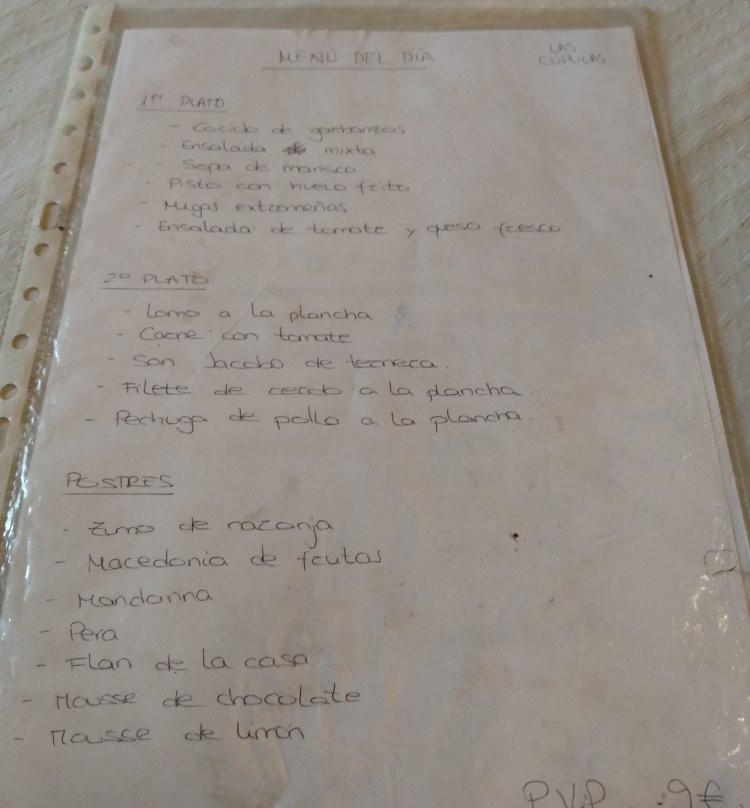 MENÚ DEL DIA
LAS
CÚPULAS
1er PLATO
- Cocido de garbanzos
- Ensalada mixta
- Sopa de marisco
- Pisto con huevo frito
- Migas extremeñas
- Ensalada de tomate y queso fresco
2º PLATO
- Lomo a la plancha
- Carne con tomate
- San Jacobo de ternera.
- Filete de cerdo a la plancha.
- Pechuga de pollo a la plancha.
POSTRES
- Zumo de naranja
- Macedonia de frutas
- Mandarina
- Pera
- Flan de la casa
- Mousse de chocolate
- Mousse de limón
P.V.P...9€